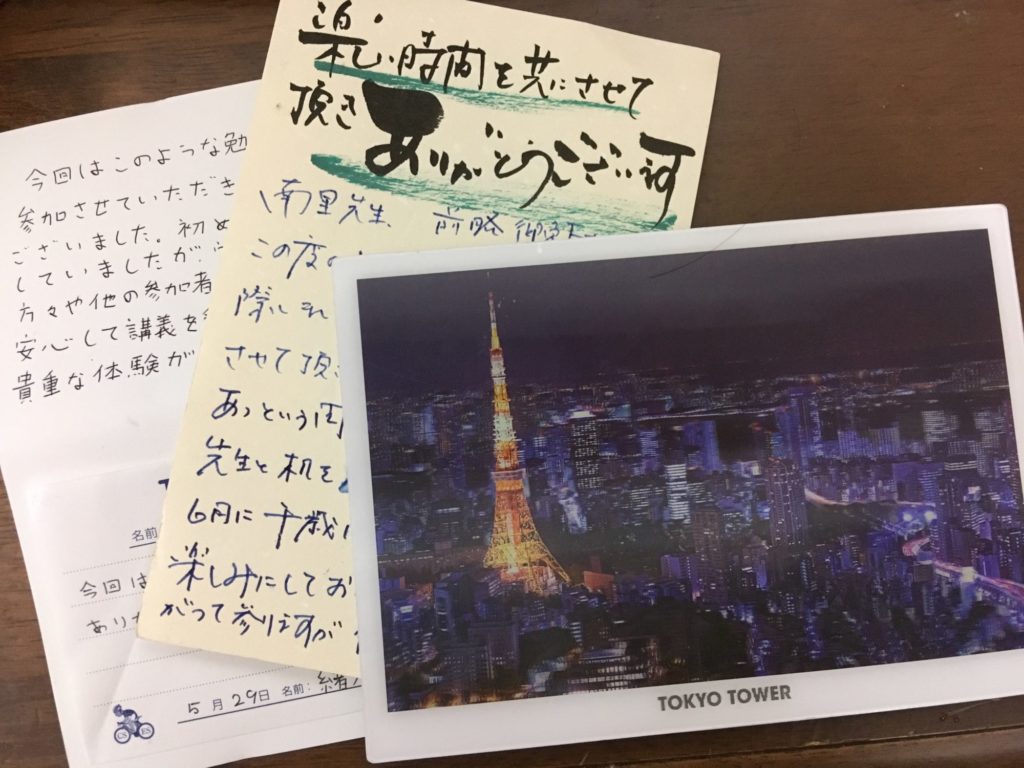 今回はこのような勉
参加させていただき
ございました。初め
していましたが、
方々や他の参加者
安心して講義を
貴重な体験が
楽しい時間を共にさせて
頂き ありがとうござい
南里先生 前略
この度
際し
させて頂
あっという間
先生と机を
6月に千歳
楽しみにしてお
がって参りますが
名前
今回は
あり
5月29日 名前:
TOKYO TOWER